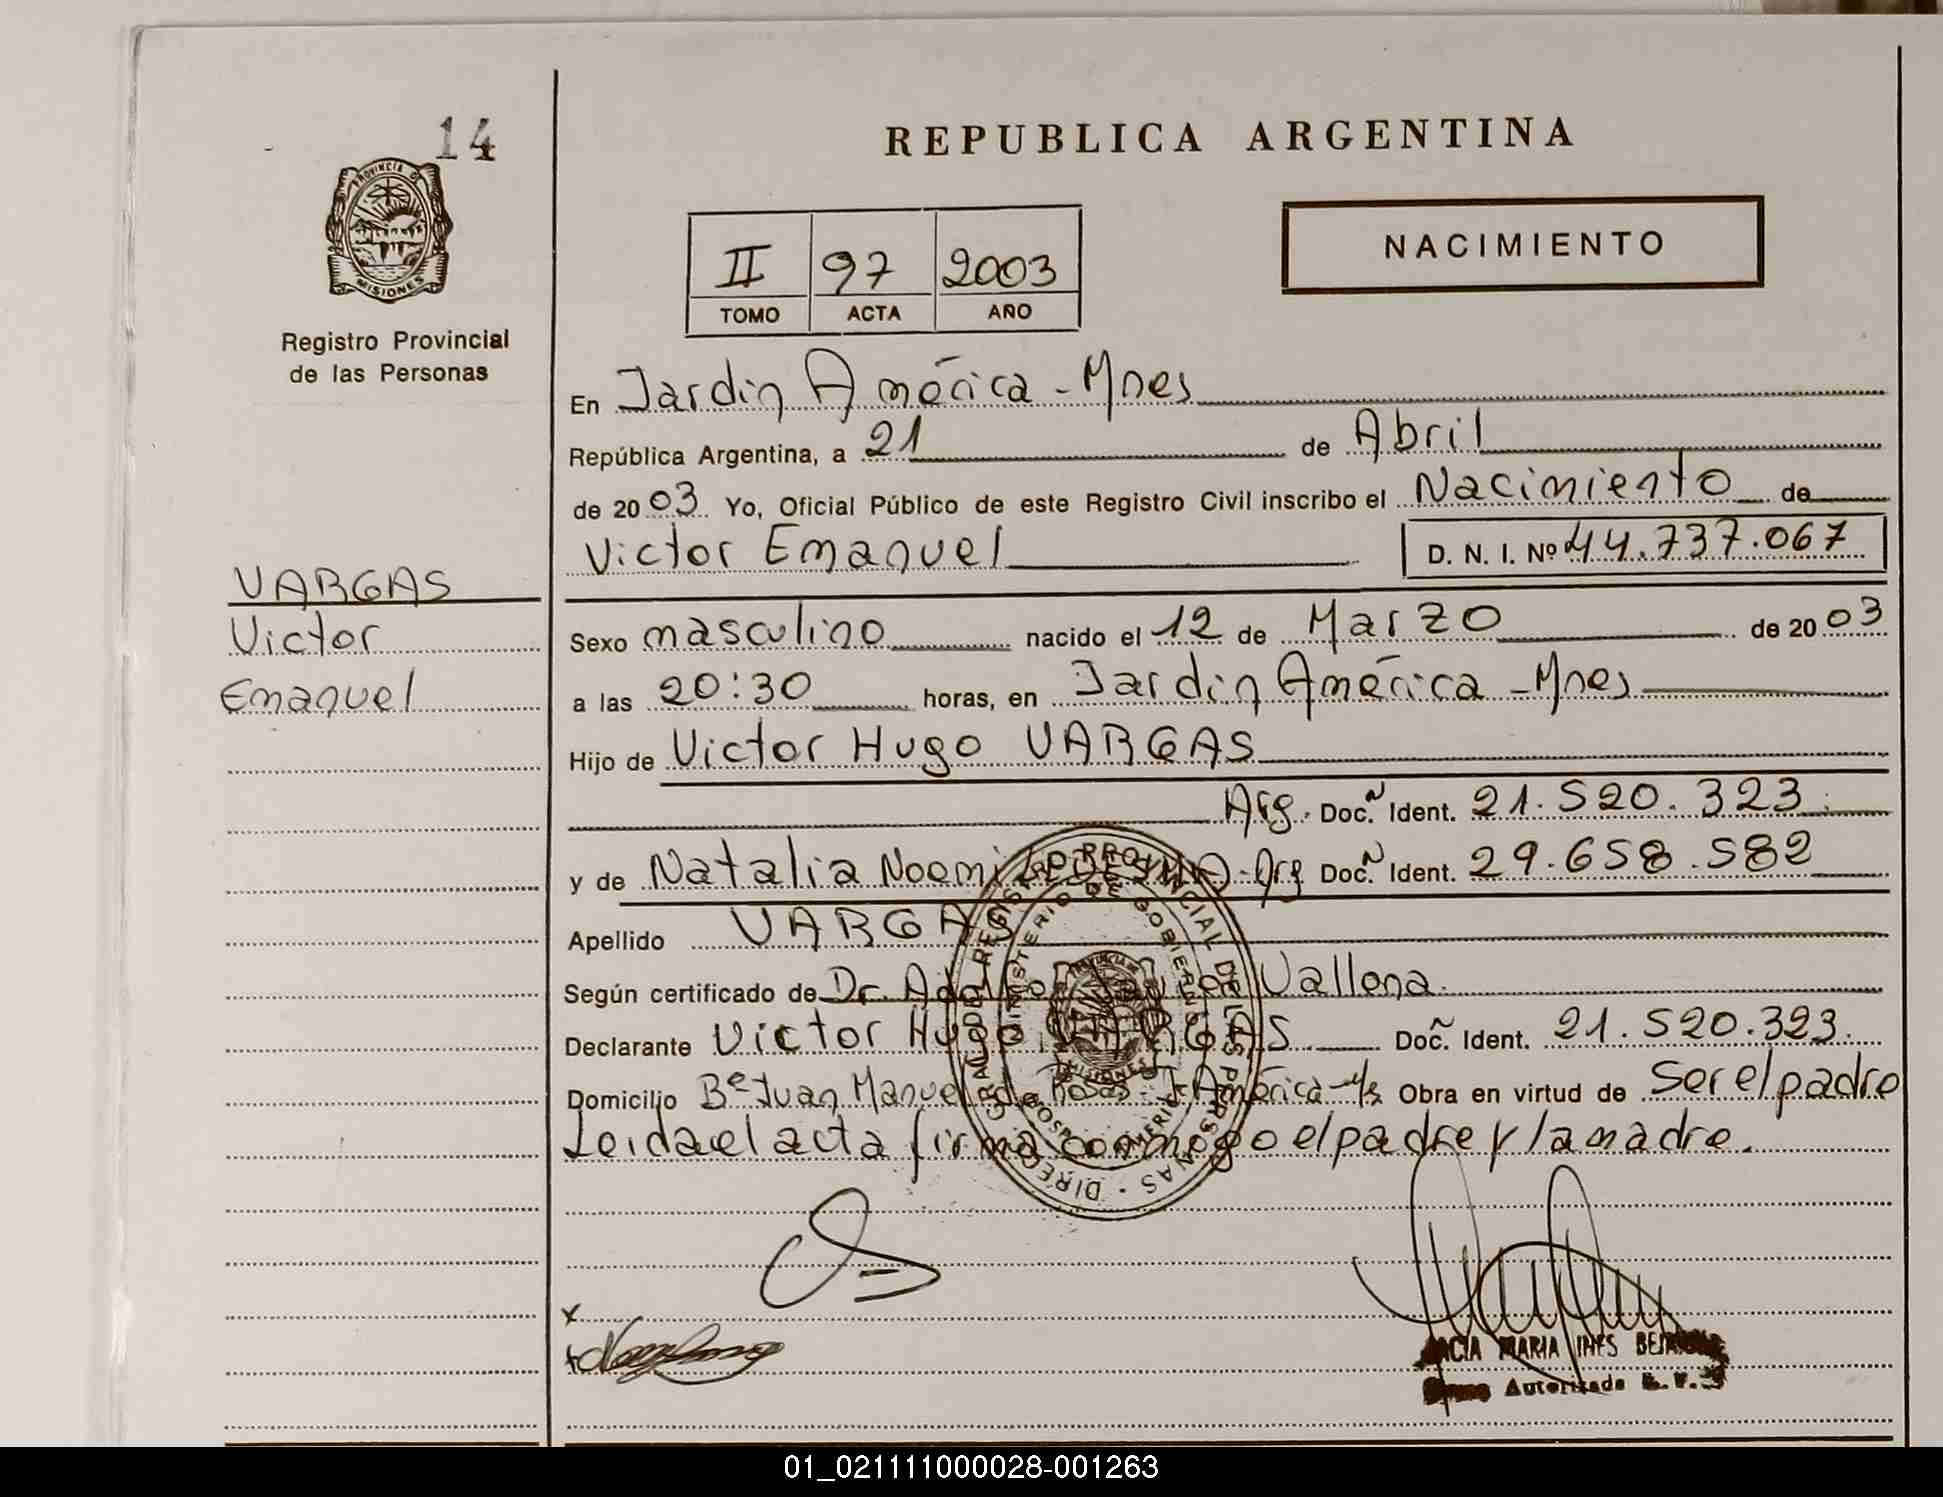 14
PROVINCIA D
MISIONES
Registro Provincial
de las Personas
REPUBLICA ARGENTINA
II 97 2003
TOMO ACTA AÑO
NACIMIENTO
En Jardin América - Mnes
República Argentina, a 21 de Abril
de 2003 Yo, Oficial Público de este Registro Civil inscribo el Nacimiento de
Victor Emanuel D. N. I. Nº 44.737.067
VARGAS
Victor
Emanuel
Sexo masculino nacido el 12 de Marzo de 2003
a las 20:30 horas, en Jardin América - Mnes
Hijo de Victor Hugo VARGAS
Arg. Doc. Ident. 21.520.323
y de Natalia Noemi LEDESMA - Arg Doc. Ident. 29.658.582
Apellido VARGAS
Según certificado de Dr. Vallona
Declarante Victor Hugo VARGAS Doc. Ident. 21.520.323.
Domicilio Bº Juan Manuel de Rosas - J. América - Obra en virtud de Ser el padre
Leida el acta firma conmigo el padre y la madre.
MARIA INES
Autorizada
01_021111000028-001263